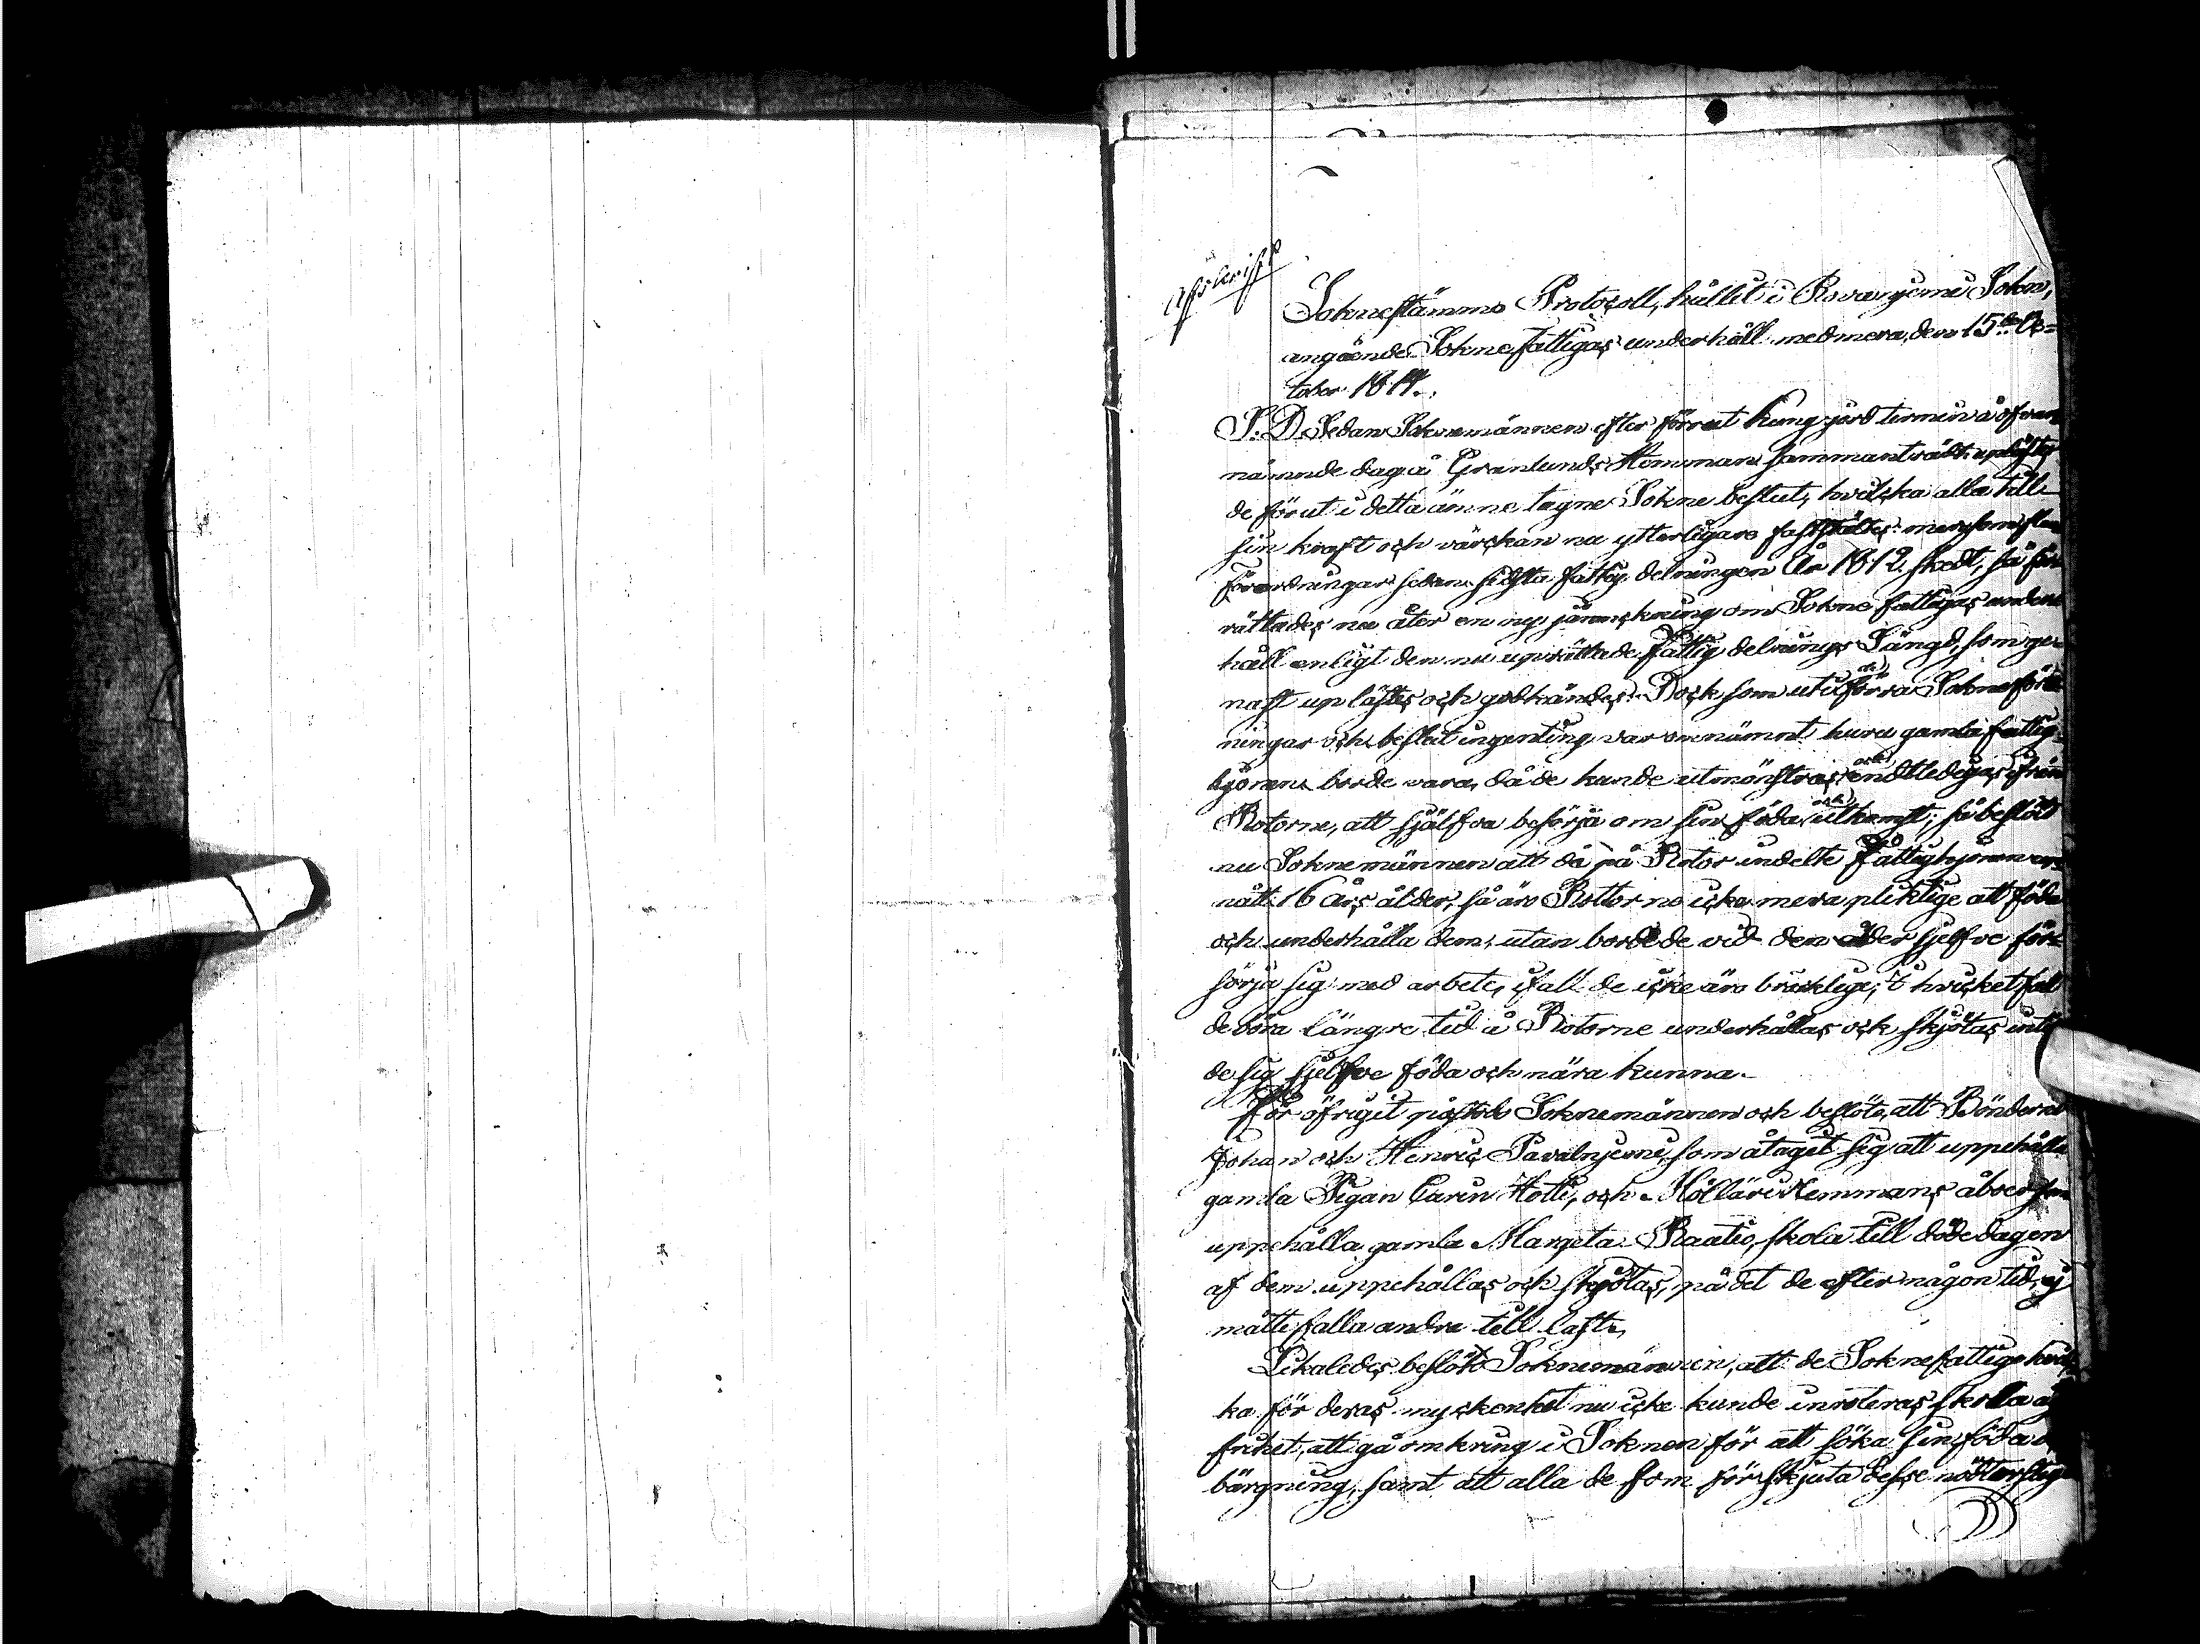 Afskrift
Soknestämmo Protocoll, hållit i Rovanjemi Sokn,
angående Soknefattigas underhåll med mera, den 15de Oc-
tober 1814.
S. D. Sedan Soknemännen efter förrut kungjord termin å ofvan
nämnde dag å Granlunds Hemman sammanträdt uplästes
de förut i detta ämne tagne Sokne beslut, hvilska alla till
sin kraft och värckan nu ytterligare fastställtes: men som flere
förordningar sedan sidsta fattig delningen År 1812. skedt, så för-
rättades nu åter en ny jämnckning om Sokne fattigas under
håll enligt den nu uprättade Fattig delnings Längd, som ge-
nast uplästes och godkändes. Dock som uti förra Sokne förord
ningar och beslut ingenting var omnämnt huru gamla fattig-
hjonen borde vara, då de kunde utmönstras och entledigas ifrån
Rotorne, att själfva besörja om sin föda och utkomst; så beslöto
nu Soknemännen att då på Rotor indelte Fattighjonen up-
nått 16 Års ålder, så äro Rottorne icke mera pliktige att föda
och underhålla dem, utan borde de vid den ålder sjelfve för-
sörja sig med arbete, ifall de icke äro bräcklige; i hvicket fall
de böra längre tid å Rotorne underhållas och skjötas intil
de sig sjelfve föda och nära kunna.
För öfrigit påstodo Soknemännen och beslöto, att Bönderne
Johan och Henric Pavalnjemi, som åtagit sig att uppehålla
gamla Pigan Carin Hotti, och Mölläri Hemmans åboer som
uppehålla gamla Margeta Raatio, skola till död dagen
af dem uppehållas och skjötas, på det de efter någon tid, ej
måtte falla andra till last.
Likaledes beslöto Soknemännen, att de Soknefattige hvil-
ka för deras myckenhet nu icke kunde inroteras skulla äg
frihet, att gå omkring i Soknen för att söka sin föda o
bärgning, samt att alla de som förskjuta desse nödtorftige